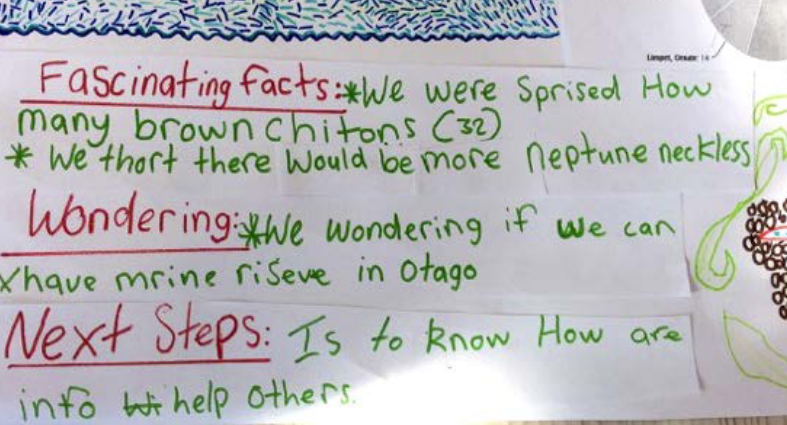 Limpet, Ornate: 14
Fascinating facts:*We were Sprised How
many brown chitons (32)
* We thort there Would be more neptune neckless
Wondering:*We wondering if we can
have mrine riseve in Otago
Next Steps: Is to know How are
info help others.